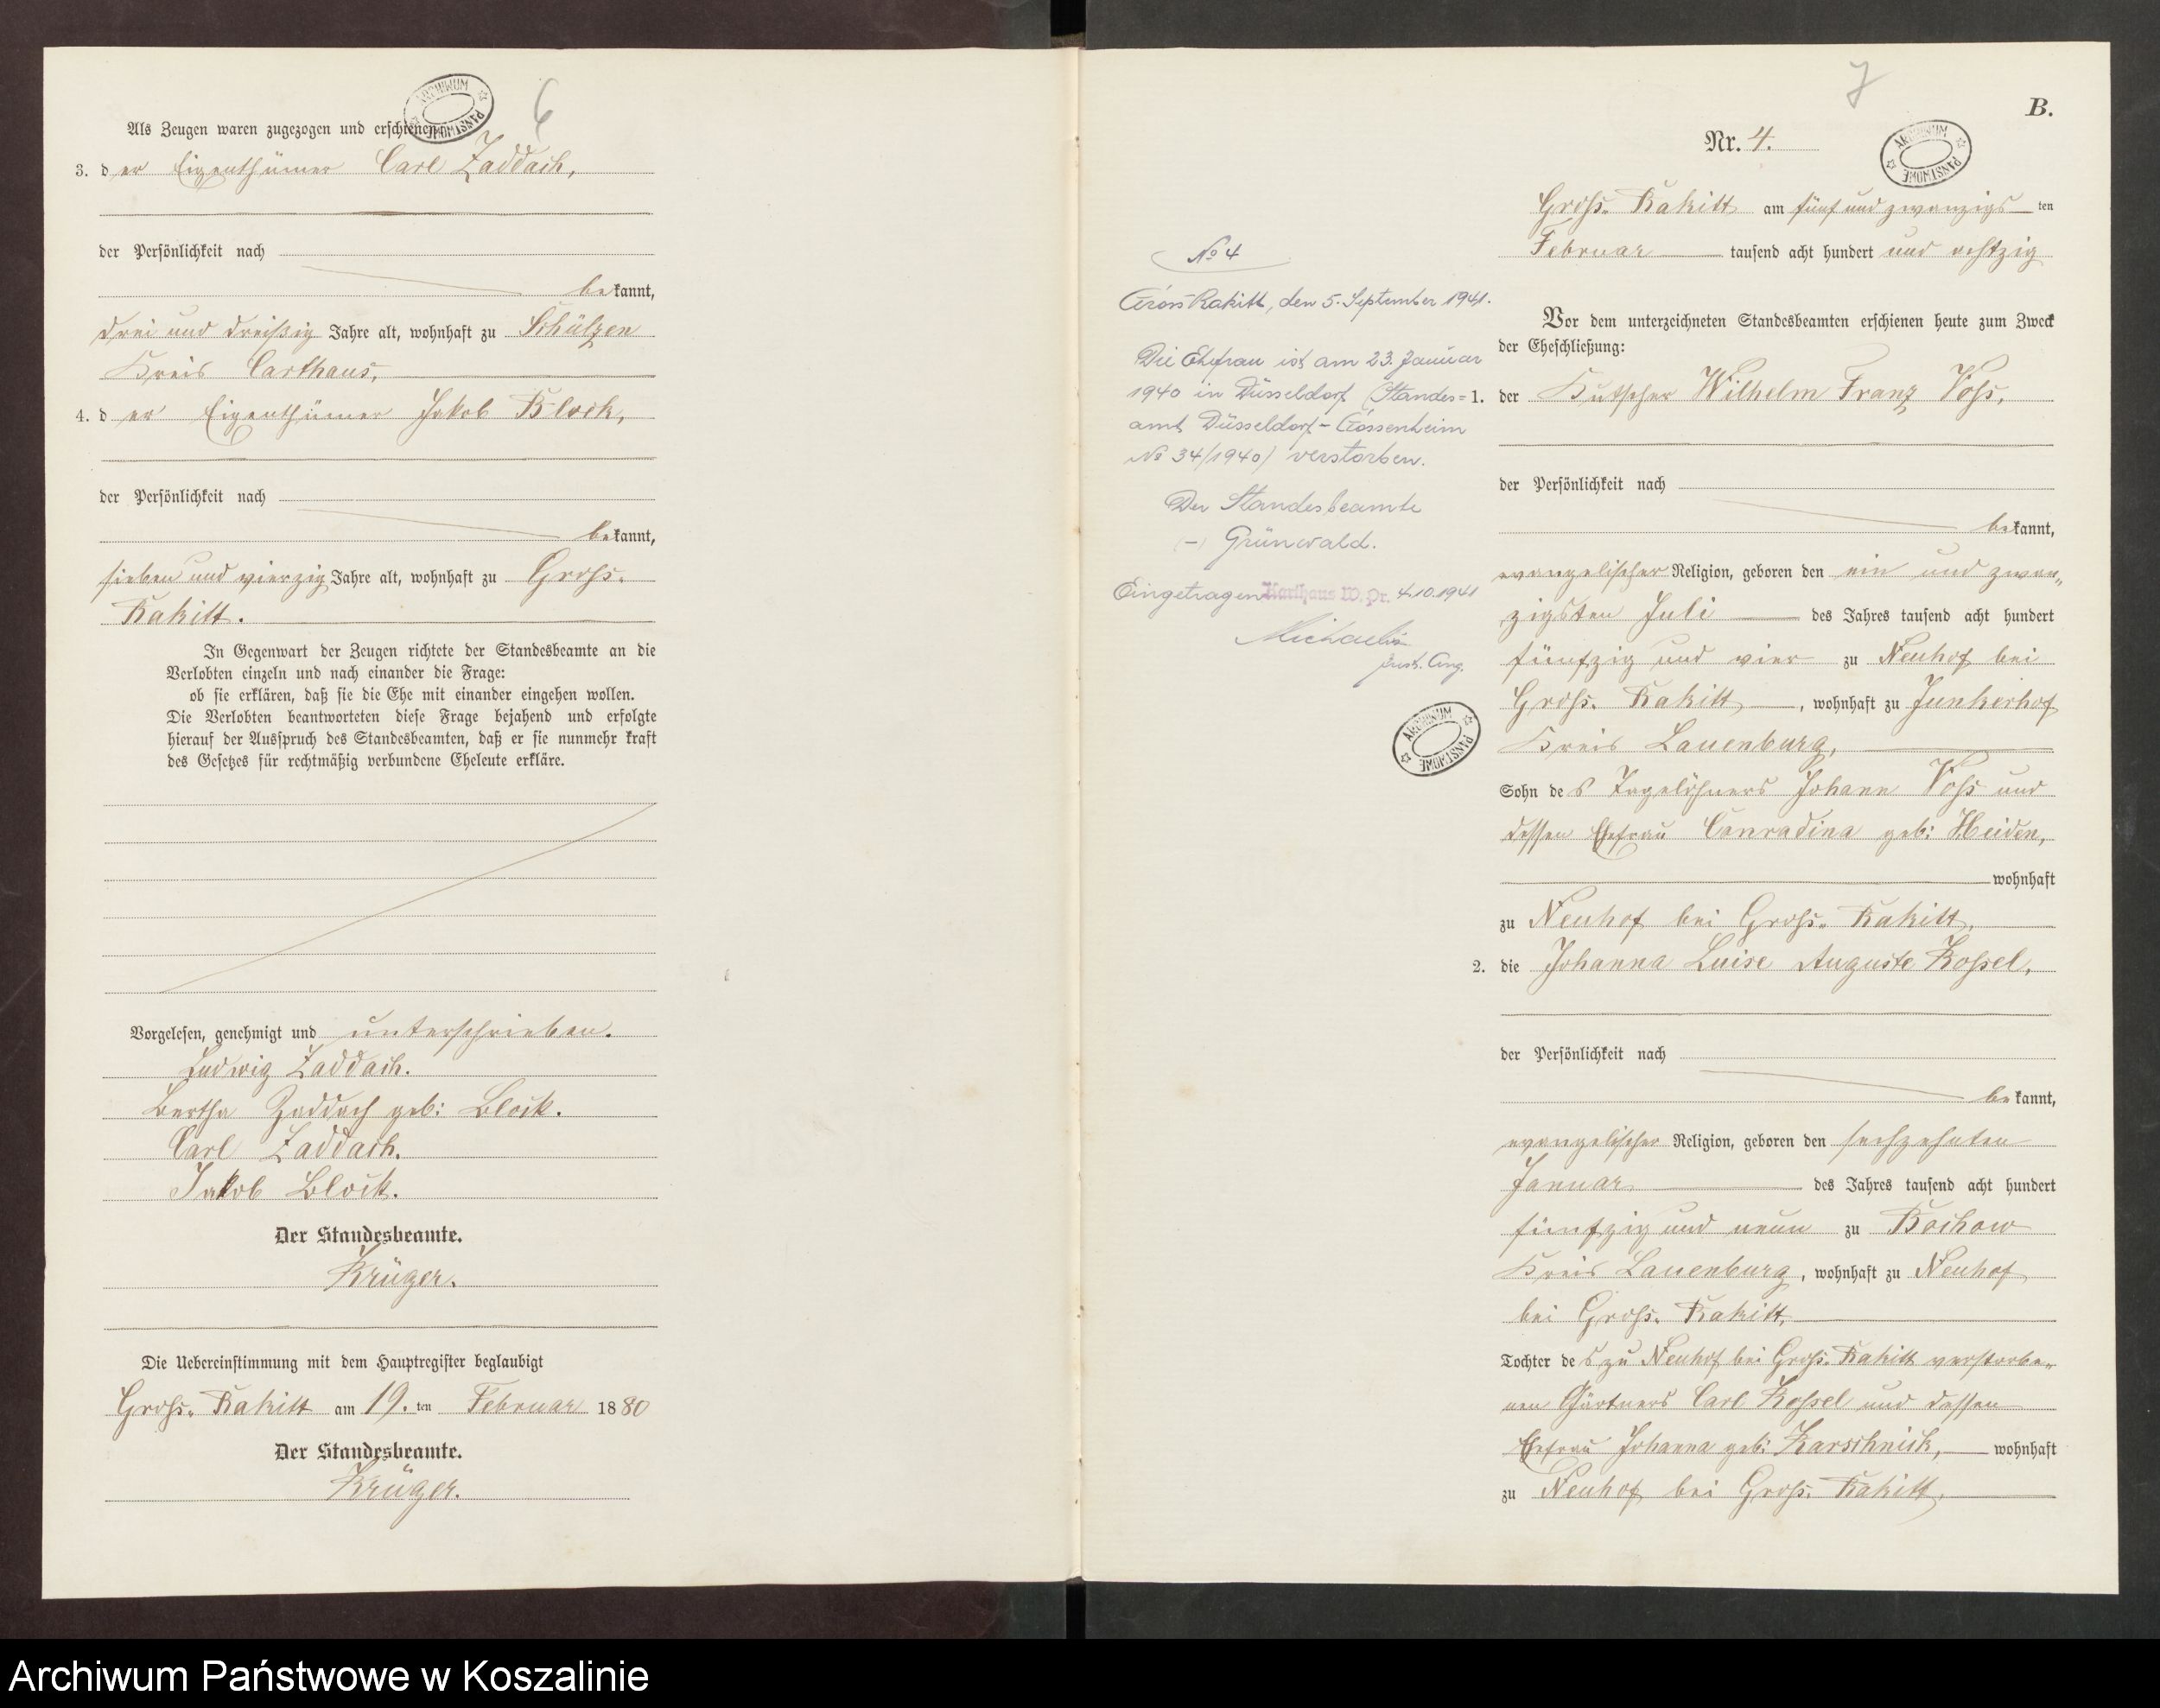 6
ARCHIWUM PAŃSTWOWE
Als Zeugen waren zugezogen und erschienen:
3. der Eigenthümer Carl Zaddach,
der Persönlichkeit nach
bekannt,
drei und dreißig Jahre alt, wohnhaft zu Schülzen
Kreis Carthaus,
4. der Eigenthümer Jakob Block,
der Persönlichkeit nach
bekannt,
sieben und vierzig Jahre alt, wohnhaft zu Groß-
Rakitt.
In Gegenwart der Zeugen richtete der Standesbeamte an die
Verlobten einzeln und nach einander die Frage:
ob sie erklären, daß sie die Ehe mit einander eingehen wollen.
Die Verlobten beantworteten diese Frage bejahend und erfolgte
hierauf der Ausspruch des Standesbeamten, daß er sie nunmehr kraft
des Gesetzes für rechtmäßig verbundene Eheleute erkläre.
Vorgelesen, genehmigt und unterschrieben.
Ludwig Zaddach.
Bertha Zaddach geb: Block.
Carl Zaddach.
Jakob Block.
Der Standesbeamte.
Krüger.
Die Uebereinstimmung mit dem Hauptregister beglaubigt
Groß-Rakitt am 19.ten Februar 1880
Der Standesbeamte.
Krüger.
7
B.
Nr. 4.
ARCHIWUM PAŃSTWOWE
Groß-Rakitt am fünf und zwanzigsten
Februar tausend acht hundert und achtzig
Vor dem unterzeichneten Standesbeamten erschienen heute zum Zweck
der Eheschließung:
1. der Kutscher Wilhelm Franz Voß,
der Persönlichkeit nach
bekannt,
evangelischer Religion, geboren den ein und zwan-
zigsten Juli des Jahres tausend acht hundert
fünfzig und vier zu Neuhof bei
Groß-Rakitt, wohnhaft zu Junkerhof
Kreis Lauenburg,
Sohn des Tagelöhners Johann Voß und
dessen Ehefrau Conradina geb: Heiden,
wohnhaft
zu Neuhof bei Groß-Rakitt,
2. die Johanna Luise Auguste Koßel,
der Persönlichkeit nach
bekannt,
evangelischer Religion, geboren den sechzehnten
Januar des Jahres tausend acht hundert
fünfzig und neun zu Bochow
Kreis Lauenburg, wohnhaft zu Neuhof
bei Groß-Rakitt,
Tochter des zu Neuhof bei Groß-Rakitt verstorbe-
nen Gärtners Carl Koßel und dessen
Ehefrau Johanna geb: Karschnick, wohnhaft
zu Neuhof bei Groß-Rakitt,
No 4
Gross-Rakitt, den 5. September 1941.
Die Ehefrau ist am 23. Januar
1940 in Düsseldorf (Standes=
amt Düsseldorf-
No 34/1940) verstorben.
Der Standesbeamte
(-) Grünwald.
Eingetragen Karthaus W. Pr. 4.10.1941
Michaelis
Just. Ang.
ARCHIWUM PAŃSTWOWE
Archiwum Państwowe w Koszalinie